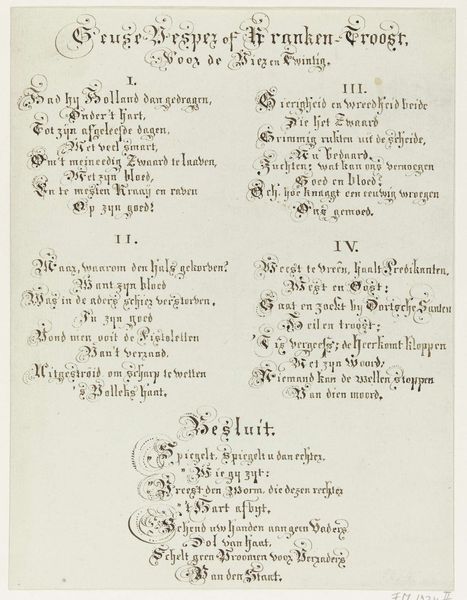 Geuse Vesper of Kranken-Troost,
Voor de Vier en Twintig.
I.
Had hy Holland dan gedragen,
Onder 't hart,
Tot zijn afgeleefde dagen,
Met veel smart,
Om 't meineedig Zwaard te laaven,
Met zijn bloed,
En te mesten Kraaij en raven
Op zijn goed?
II.
Maar, waarom den hals gekorven?
Want zijn bloed
Was in de aders schier verstorven,
In zijn goed
Vond men ooit de Pistoletten
Van 't verraad,
Uitgestroid om scharp te wetten
's Volleks haat.
III.
Gierigheid en wreedheid beide
Die het Zwaard
Grimmig rukten uit de scheide,
Nu bedaard,
Zuchten: wat kan ons vernoegen
Goed en bloed?
Och, hoe knaagt een eeuwig wroegen
Ons gemoed.
IV.
Weest te vreên, haalt Predikanten,
West en Oost:
Gaat en zoekt bij Dortsche Santen
Heil en troost:
'Tis vergeefs; de Heer komt kloppen
Met zijn Woord;
Niemand kan de wellen stoppen
Van dien moord.
Besluit.
Spiegelt, spiegelt u dan echter,
Wie gij zijt:
Vreest den Worm, die dezen rechter
't Hart afbijt.
Schend uw handen aan geen Vaders
Dol van haat,
Schelt geen Vroomen voor Verraders
Van den Staat.